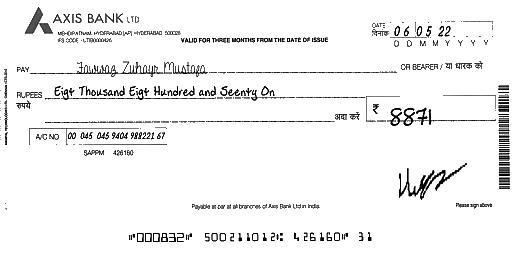 AXIS BANK LTD
MEHDIPATNAM, HYDERABAD [AP] HYDERABAD 500028
IFS CODE - UTIB0000426
VALID FOR THREE MONTHS FROM THE DATE OF ISSUE
DATE
दिनांक 06 05 22
D D M M Y Y Y Y
PAY Fawwaz Zuhayr Mustafa OR BEARER / या धारक को
RUPEES Eigt Thousand Eigt Hundred and Seenty On
रुपये अदा करें ₹ 8871
A/C NO 00 045 045 9404 988221 67
SAPPM 426160
Payable at par at all branches of Axis Bank Ltd in India.
Please sign above
⑈000832⑈ 500211012⑆ 426160⑈ 31